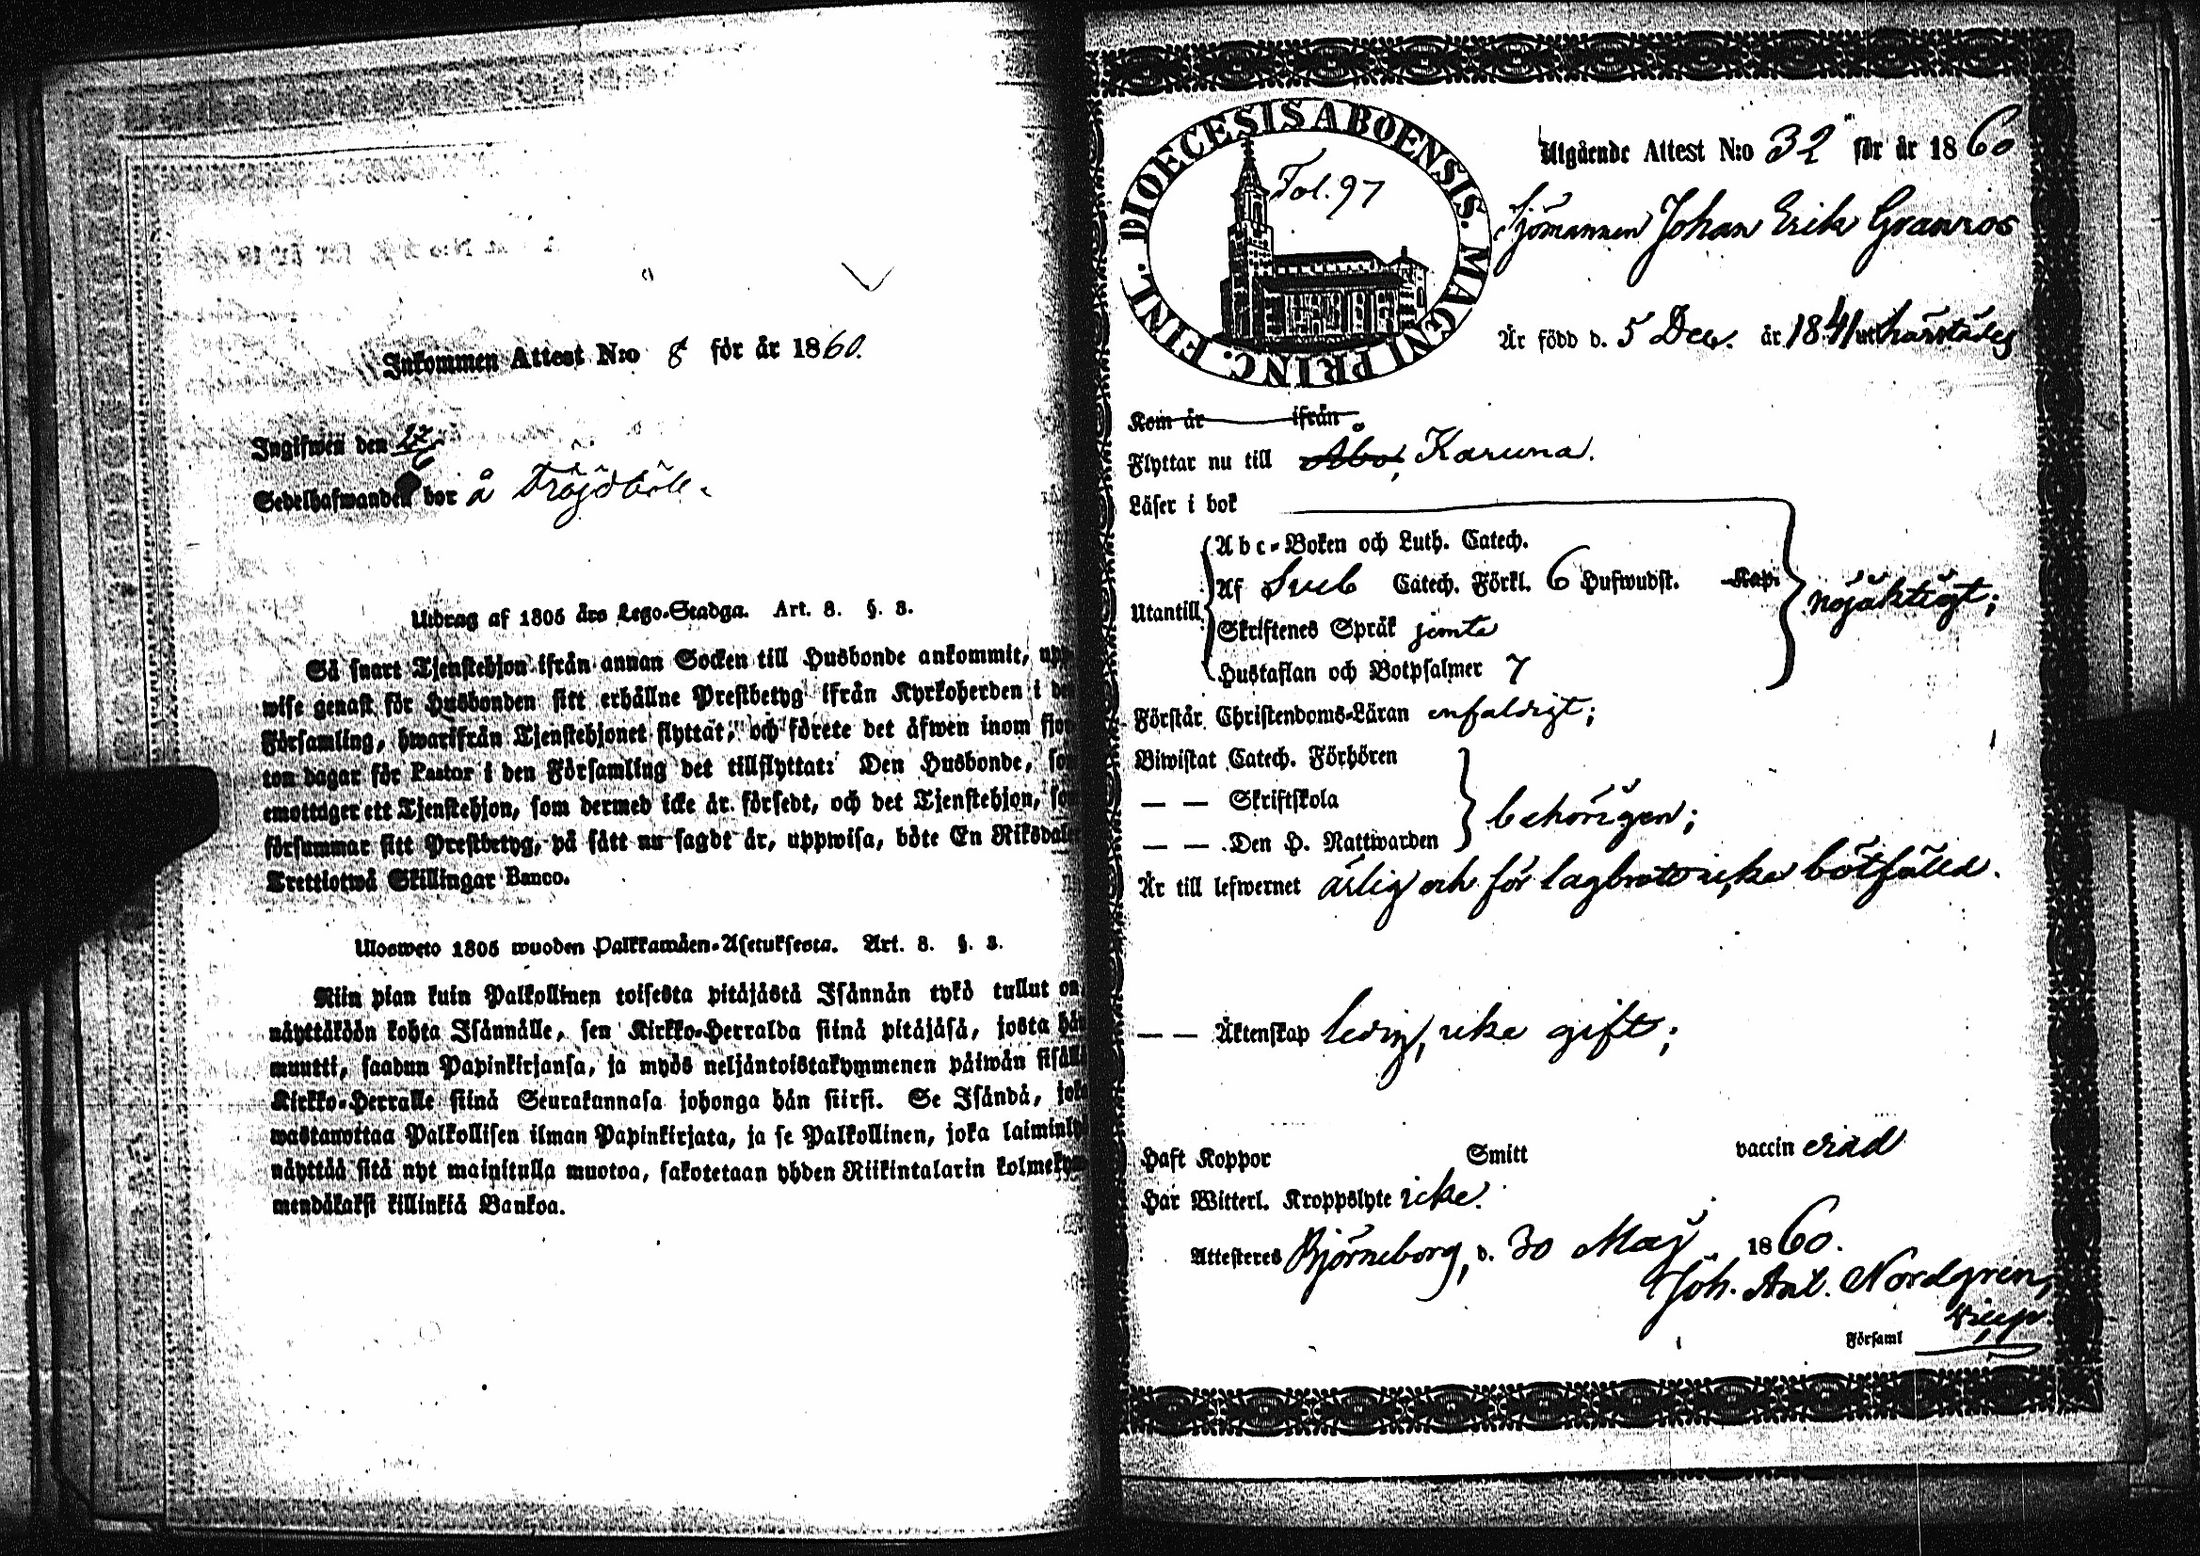 Inkommen Attest N:o 8 för år 1860.
Ingifwen den 17/6
Sedelhafwanden bor å Tröjdböle.
Utdrag af 1805 års Lego-Stadga. Art. 8. §. 3.
Så snart Tjenstehjon ifrån annan Socken till Husbonde ankommit, upp-
wise genast för Husbonden sitt erhållne Prestbetyg ifrån Kyrkoherden i den
Församling, hwarifrån Tjenstehjonet flyttat, och förete det äfwen inom fjor-
ton dagar för Pastor i den Församling det tillflyttat: Den Husbonde, som
emottager ett Tjenstehjon, som dermed icke är försedt, och det Tjenstehjon, som
försummar sitt Prestbetyg, på sätt nu sagdt är, uppwisa, böte En Riksdaler
Trettiotwå Skillingar Banco.
Ulosweto 1805 wuoden Palkkawäen-Asetuksesta. Art. 8. §. 3.
Niin pian kuin Palkollinen toisesta pitäjästä Isännän tykö tullut on,
näyttäköön kohta Isännälle, sen Kirkko-Herralda siinä pitäjäsä, josta hän
muutti, saadun Papinkirjansa, ja myös neljäntoistakymmenen päiwän sisällä
Kirkko-Herralle siinä Seurakannasa johonga hän siirsi. Se Isändä, joka
wastanottaa Palkollisen ilman Papinkirjata, ja se Palkollinen, joka laiminlyö
näyttää sitä nyt mainitulla muotoa, sakotetaan yhden Riikintalarin kolmekym-
mendäkaksi killinkiä Bankoa.
DIOECESIS ABOENSIS. MAGNI PRINC. FINL.
Fol. 97
Utgående Attest N:o 32 för år 1860
Sjömannen Johan Erik Granros
Är född d. 5 Dec. år 1841 uti härstädes
Kom år ifrån
Flyttar nu till Åbo, Karuna.
Läser i bok
Abc-Boken och Luth. Catech.
Af Sveb Catech. Förkl. 6 Hufwudst. Kap.
Utantill
nöjaktigt;
Skriftenes Språk jemte
Hustaflan och Botpsalmer 7
Förstår Christendoms-Läran enfaldigt;
Biwistat Catech. Förhören
— — Skriftskola
behörigen;
— — Den H. Nattwarden
Är till lefwernet ärlig och för lagbrott icke bötfälld.
— — Äktenskap ledig, icke gift;
Haft Koppor Smitt vaccinerad
Har Witterl. Kroppslyte icke.
Attesteres Björneborg, d. 30 Maj 1860.
Joh. Ant. Nordgren,
Församl